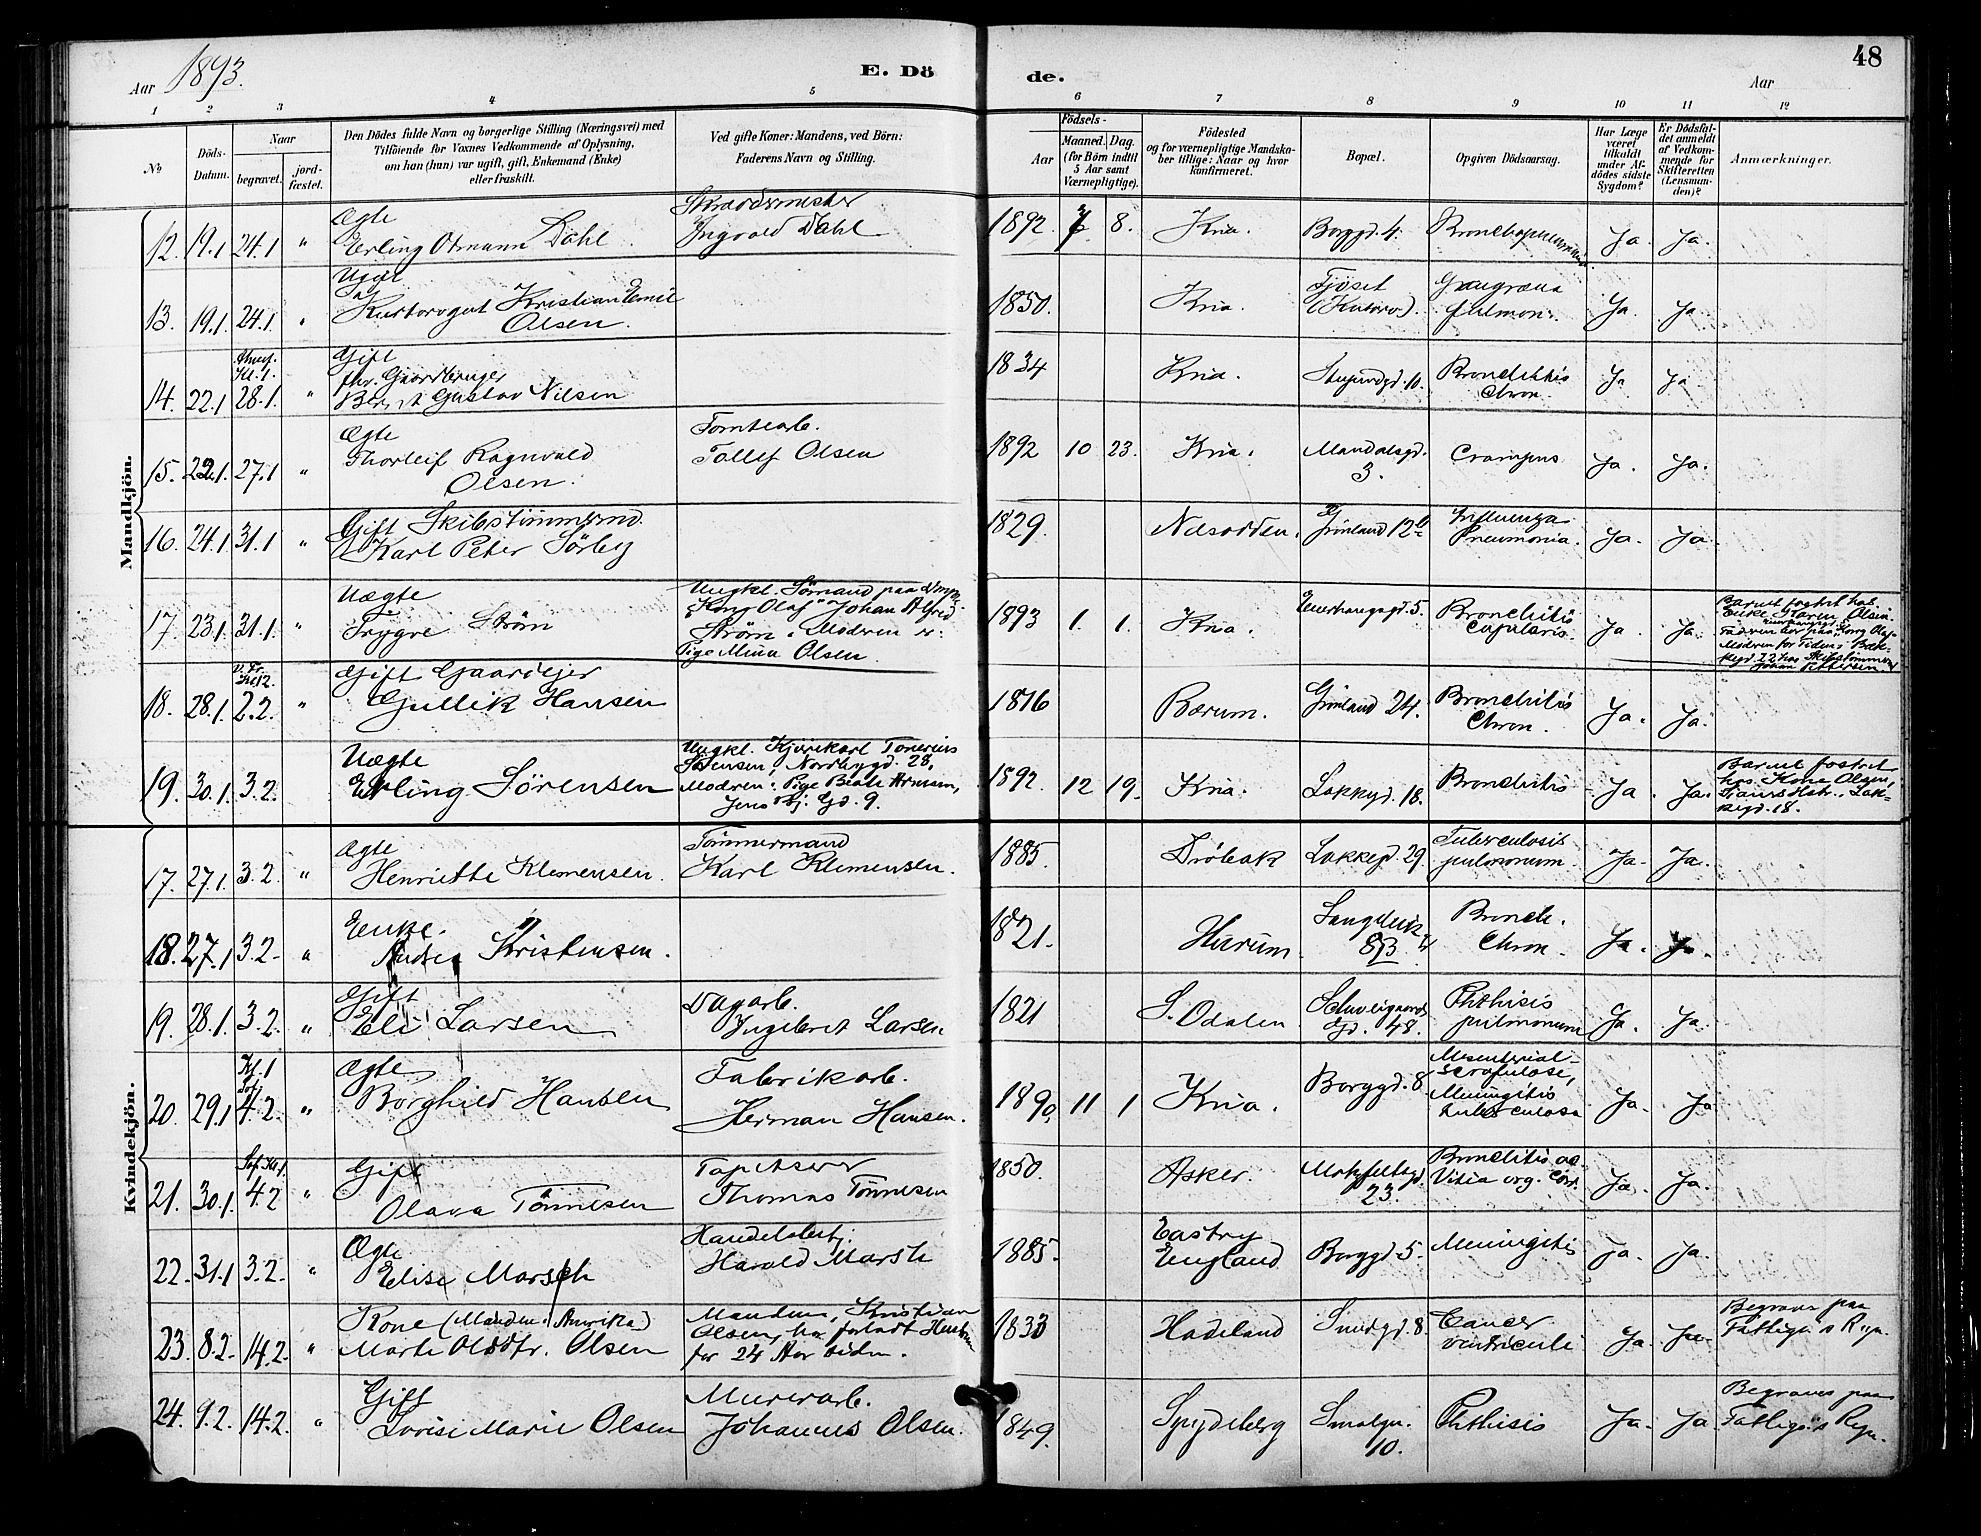 48
Aar 1893.
E. Döde.
Aar
1 2 3 4 5 6 7 8 9 10 11 12
№
Döds-Datum.
Naar
begravet.
jord-fæstet.
Den Dödes fulde Navn og borgerlige Stilling (Næringsvei) med
Tilföiende for Voxnes Vedkommende af Oplysning,
om han (hun) var ugift, gift, Enkemand (Enke)
eller fraskilt.
Ved gifte Koner: Mandens, ved Börn:
Faderens Navn og Stilling.
Födsels-
Aar
Maaned. Dag.
(for Börn indtil
5 Aar samt
Værnepligtige).
Födested
og for værnepligtige Mandska-
ber tillige: Naar og hvor
konfirmeret.
Bopæl.
Opgiven Dödsaarsag.
Har Læge
været
tilkaldt
under Af-
dödes sidste
Sygdom?
Er Dödsfal-
det anmeldt
af Vedkom-
mende for
Skifteretten
(Lensman-
den)?
Anmærkninger.
Mandkjön.
12. 19.1 24.1 " Ægte Erling Otmann Dahl. Skræddermester Ingvald Dahl 1892. 7 8. Kria. Borggd. 4. Bronchopneumonia. Ja. Ja.
13. 19.1. 24.1. " Ugift Kristian Emil Olsen. 1850. Kria. Tjöset Gangræna Ja. Ja
14. 22.1 28.1. " Gift fhv. Gaardbruger Bernt Gustav Nilsen 1834 Kria. 10. Bronchitis Chron. Ja Ja
15. 22.1. 27.1 " Ægte Thorleif Ragnvald Olsen. Tomtearb. Tollef Olsen 1892 10 23. Kria. Mandalsgd. 3. Crampus Ja. Ja.
16. 24.1 31.1 " Gift Skibstömmermd. Karl Peter Sörby 1829. Nesodden. Grönland 12 b Influenza Pneumonia. Ja. Ja.
17. 23.1 31.1. " Uægte Trygve Ström Ungkl. Sömand paa "Kong Olaf" Johan Alfred Ström. Modren er: Pige Mina Olsen. 1893 1. 1. Kria. Enerhauggd. 5. Bronchitis capilaris. Ja. Ja. Barnet fostret hos Enke Karen Olsen.
18. 28.1. Kl 12. 2.2. " Gift Gaardejer Gullik Hansen 1816 Bærum. Grönland 24. Bronchitis Chron. Ja. Ja.
19. 30.1. 3.2. Uægte Erling Sörensen Ungkl. Kjörekarl Sörensen, Nordbygd. 28, Modren: Pige Beate Arnesen, Gd. 9. 1892. 12 19. Kria. Lakkegd. 18. Bronchitis Ja. Ja. Barnet fostret hos Kone Olsen, Lakkegd. 18.
Kvindekjön.
17. 27.1. 3.2. " Ægte Henriette Klemensen. Tömmermand Karl Klemensen. 1885. Dröbak Lakkegd. 29. Tuberculosis pulmonum. Ja. Ja.
18. 27.1 3.2. " Enke. Kristensen. 1821. Hurum. Bronch. Chron. Ja. Ja.
19. 28.1. 3.2. " Gift Eli Larsen Dagarb. Ingebret Larsen 1821 S. Odalen Schweigaards Gd. 48. Phthisis pulmonum Ja. Ja.
20. 29.1 Kl. 1 4.2. " Ægte Borghild Hansen Fabrikarb. Herman Hansen. 1890. 11 1 Kria. Borggd. 8 Mesenterial-scrofulose, Meningitis tuberculosa Ja. Ja
21. 30.1. Kl. 1. 4.2 " Gift Olava Tönnesen Tapetserer Thomas Tönnesen 1850. Asker. Motzfeldtsgd. 23. Bronchitis ac. Vitia org. Cord. Ja. Ja.
22. 31.1 3.2. " Ægte Elise Marsch Handelsbetj. Harold Marsh 1885. Eastry England Borggd. 5. Meningitis Ja. Ja.
23. 8.2. 14.2. " Kone (Manden i Amerika) Marte Olsdtr. Olsen Manden, Kristian Olsen, har forladt Hustruen for 24 Aar siden. 1833 Hadeland Smedgd. 8. Cancer ventriculi Ja. Ja. Begraves paa Fattigv's Regn.
24. 9.2. 14.2. " Gift Lovise Marie Olsen Murerarb. Johannes Olsen. 1849. Spydeberg Smalgn. 10. Phthisis Ja. Ja Begraves paa Fattigv's Regn.